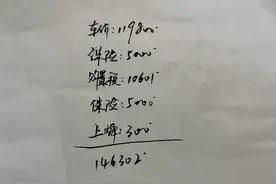 车价:119800
保险:5000
购置税:10601
保险:5000
上牌:300
146302